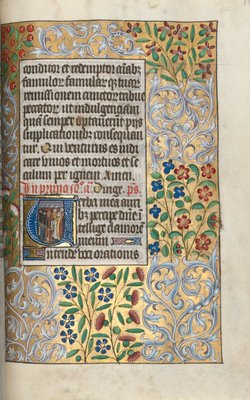 conditor et redemptor aīabꝰ
famulor̄ famular̄ qꝫ tuar̄
remissionem cunctor̄ tribue
peccator̄ ut indulgenciam
quā semper optauerūt pijs
supplicationibꝰ consequan
tur. Qui venturus es iudi
care viuos et mortuos et se
culum per ignem Amen.
In prima feria a Longe. ps.
Uerba mea auri
bꝰ percipe dñe i
tellige clamorem
meum
Intende voci orationis